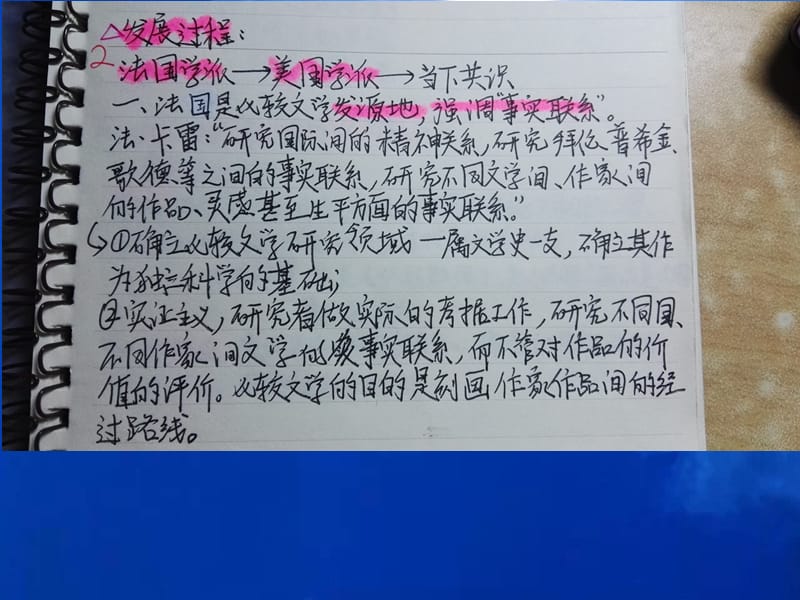 △发展过程：
2 法国学派→美国学派→当下共识
一、法国是比较文学发源地，强调“事实联系”。
法·卡雷：“研究国际间的精神联系，研究拜伦、普希金、
歌德等之间的事实联系，研究不同文学间、作家间
的作品、灵感甚至生平方面的事实联系。”
↳①确立比较文学研究领域—属文学史一支，确立其作
为独立科学的基础；
②实证主义，研究者做实际的考据工作，研究不同国、
不同作家间文学的事实联系，而不管对作品的价
值的评价。比较文学的目的是刻画作家作品间的经
过路线。